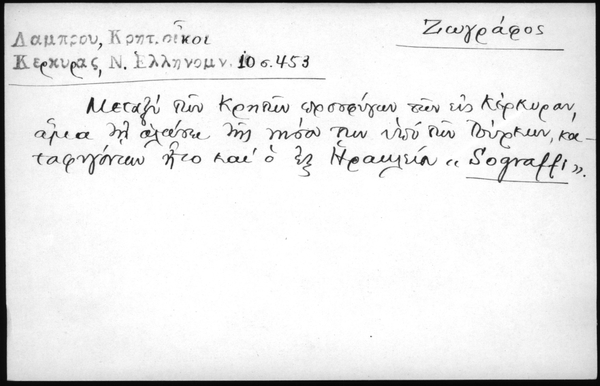 Ζωγράφος
Λαμπρου, Κρητ. οἶκοι
Κερκυρας, Ν. Ἑλληνομν. 10 σ. 453
Μεταξύ τῶν Κρητῶν προσφύγων τῶν εἰς Κέρκυραν,
ἅμα τῇ ἁλώσει τῆς νήσου των ὑπό τῶν Τούρκων, κα-
ταφυγόντων ἦτο καί ὁ ἐξ Ἡρακλείου «Sograffi».